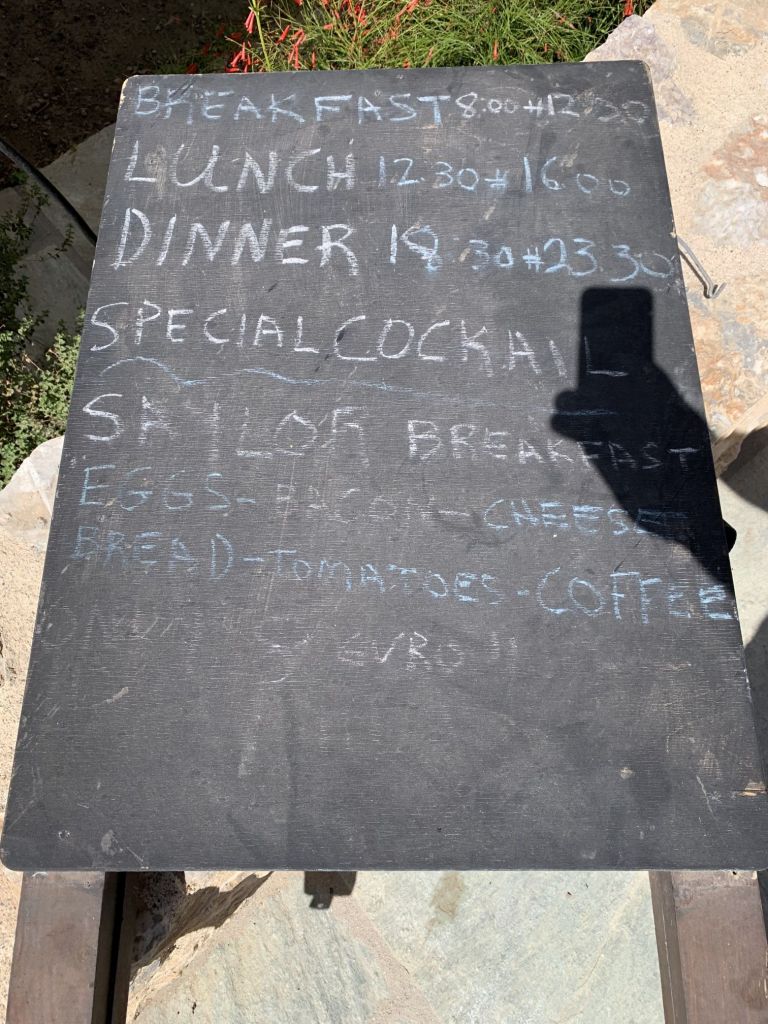 BREAKFAST 8:00 #12.30
LUNCH 12.30 # 16.00
DINNER 18:30 #23.30
SPECIAL COCKAIL
SAYLOR BREAKFAST
EGGS-BACON-CHEESE-
BREAD-TOMATOES-COFFEE
5 EVRO !!